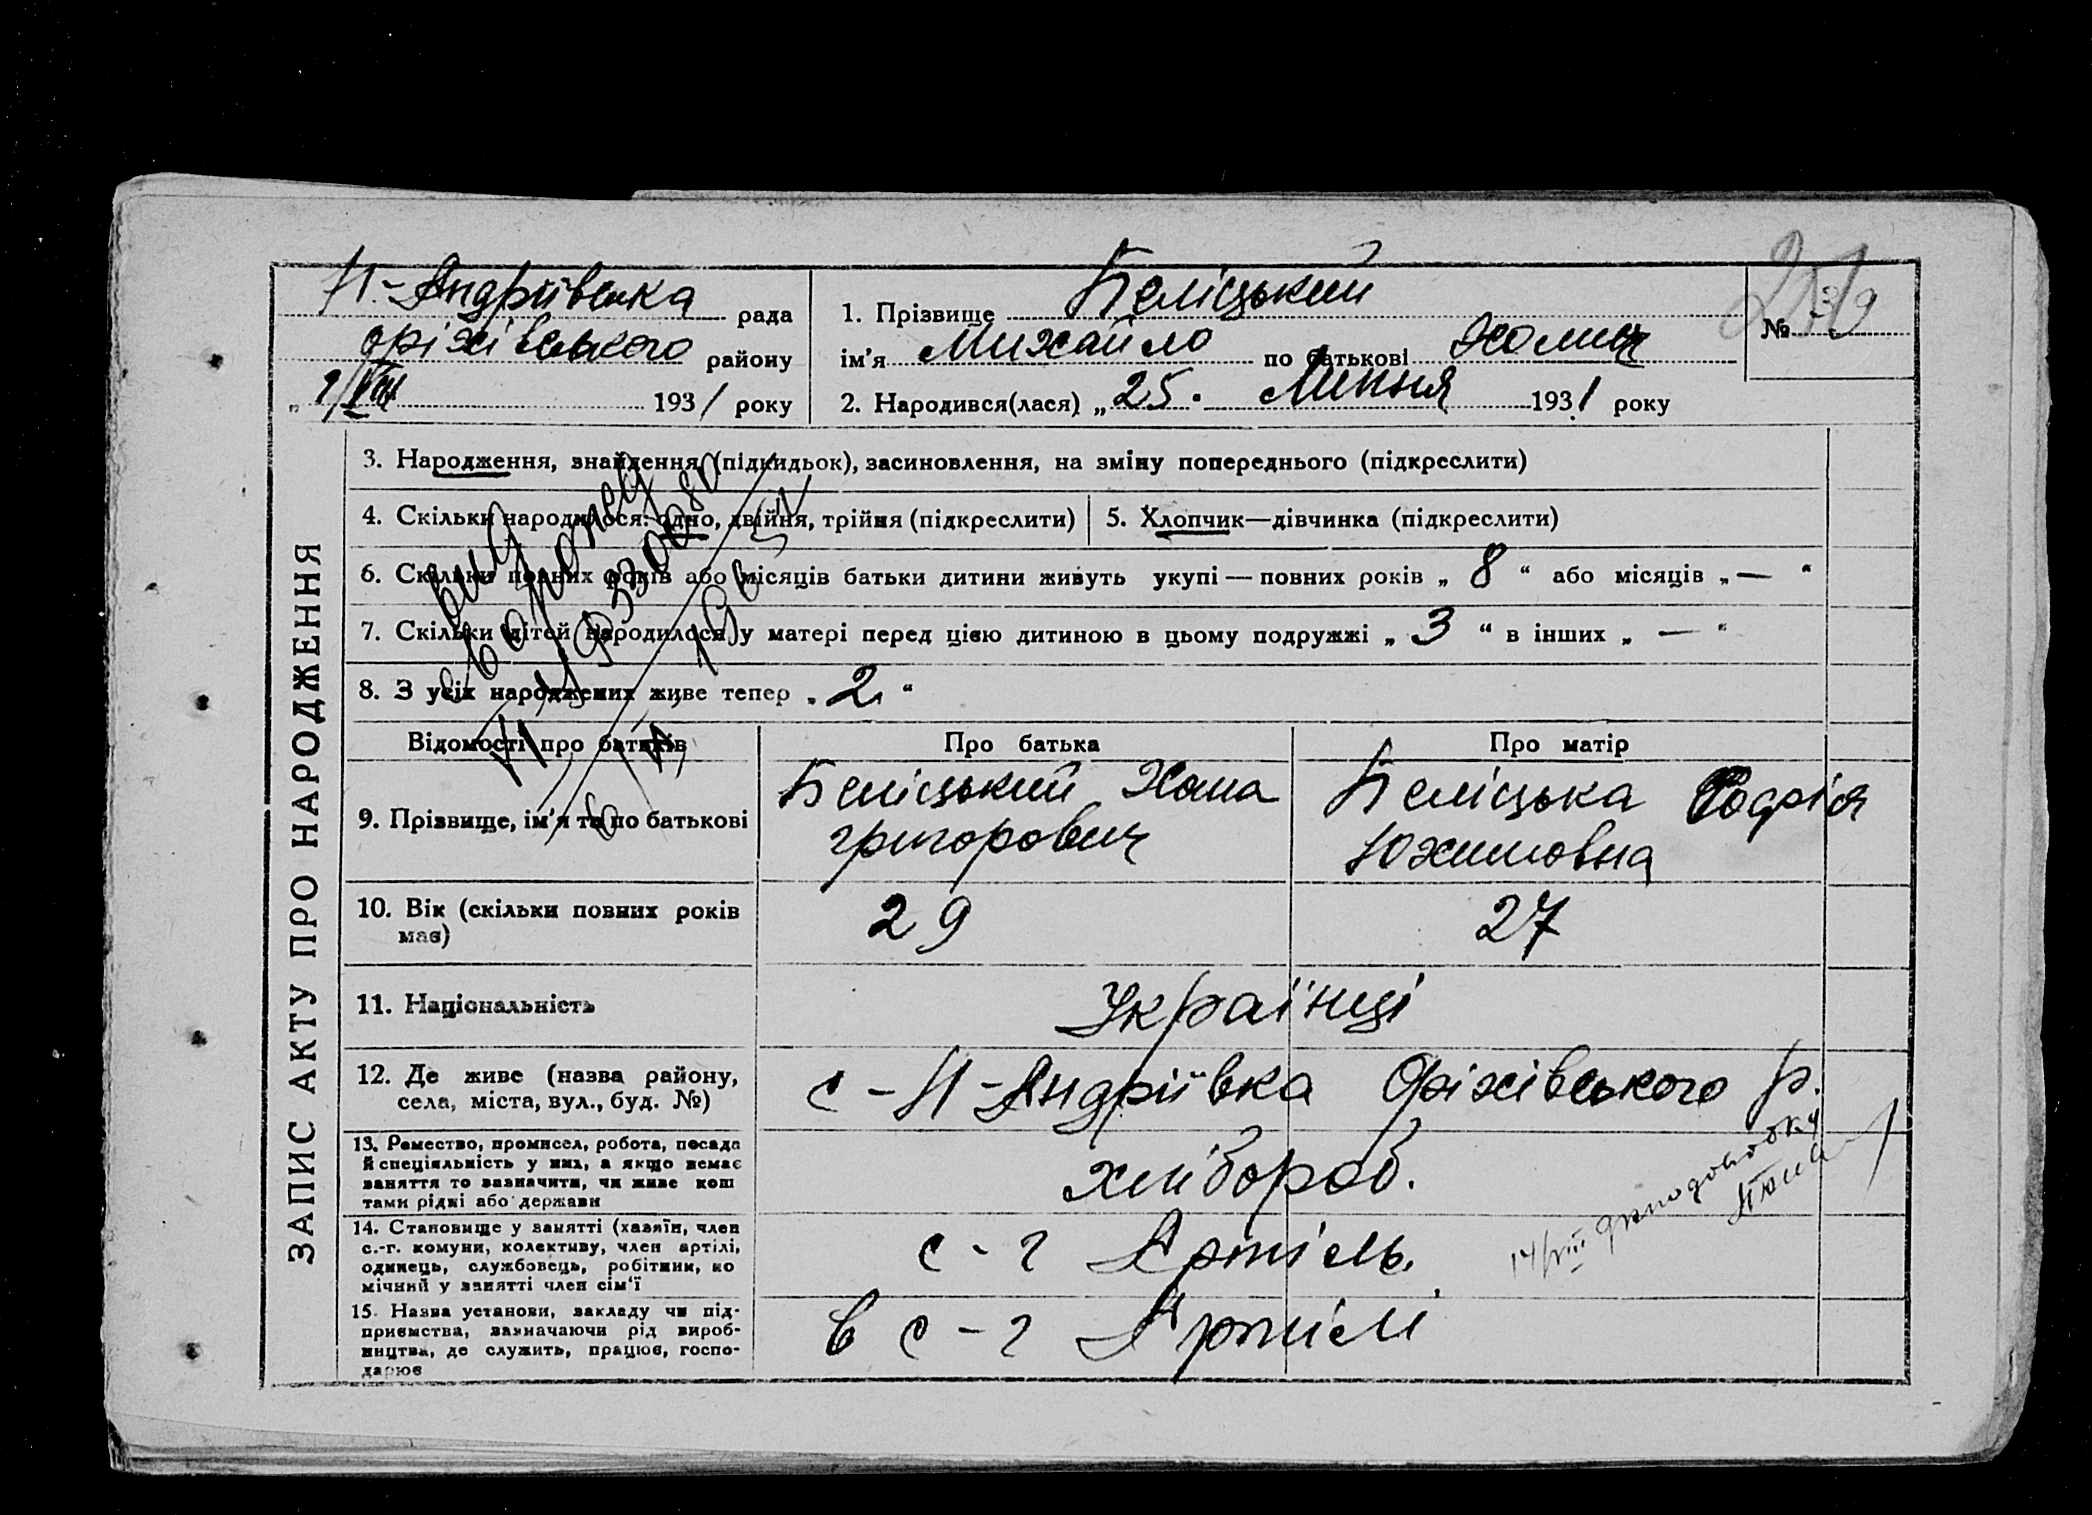 Н-Андріївська рада
оріхівського району
„ 9/VIII 1931 року
1. Прізвище Беліцький
ім'я Михайло по батькові Хомич
2. Народився(лася) „ 25. Липня 1931 року
№ 39
ЗАПИС АКТУ ПРО НАРОДЖЕННЯ
3. Народження, знайдення (підкидьок), засиновлення, на зміну попереднього (підкреслити)
4. Скільки народилося: одно, двійня, трійня (підкреслити)
5. Хлопчик—дівчинка (підкреслити)
6. Скільки повних років або місяців батьки дитини живуть укупі — повних років „ 8 “ або місяців „ — “
7. Скільки дітей народилося у матері перед цією дитиною в цьому подружжі „ 3 “ в інших „ — “
8. З усіх народжених живе тепер „ 2 “
Відомості про батьків
Про батька
Про матір
9. Прізвище, ім'я та по батькові
Беліцький Хома
григорович
Беліцька Софія
Юхимовна
10. Вік (скільки повних років
має)
29
27
11. Національність
Українці
12. Де живе (назва району,
села, міста, вул., буд. №)
с-Н-Андріївка Оріхівського р.
13. Ремество, промисел, робота, посада
й спеціяльність у них, а якщо немає
заняття то зазначити, чи живе кош
тами рідні або держави
хлібороб.
14. Становище у занятті (хазяїн, член
с.-г. комуни, колективу, член артілі,
одинець, службовець, робітник, по
мічний у занятті член сім'ї
с-г Артіль.
15. Назва установи, закладу чи під-
приємства, зазначаючи рід вироб-
ництва, де служить, працює, госпо-
дарює
в с-г Артілі
14/VIII